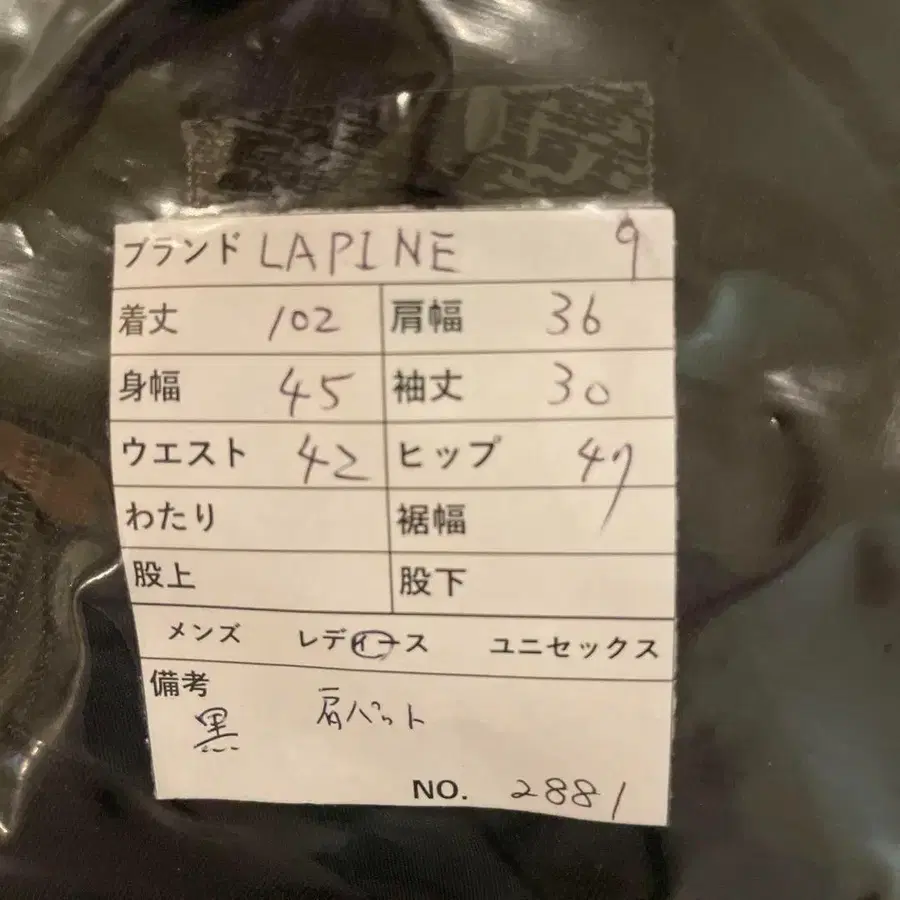 ブランド LAPINE 9
着丈 102 肩幅 36
身幅 45 袖丈 30
ウエスト 42 ヒップ 47
わたり 裾幅
股上 股下
メンズ レディース ユニセックス
備考
黒 肩パット
NO. 2881